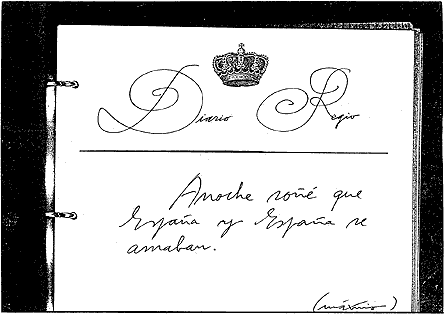 Diario Regio
Anoche soñé que
España y España se
amaban.
(máximo)